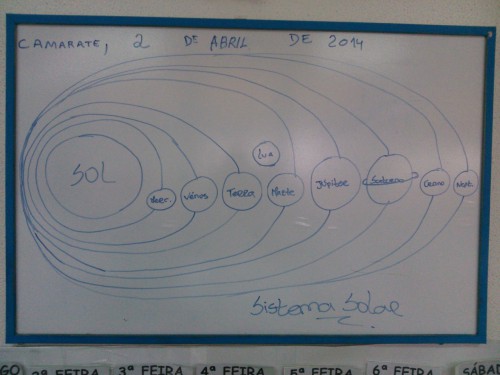 CAMARATE, 2 DE ABRIL DE 2014
SOL
Lua
Merc. Vénus Terra Marte Júpiter Saturno Urano Nept.
Sistema Solar
GO 2ª FEIRA 3ª FEIRA 4ª FEIRA 5ª FEIRA 6ª FEIRA SÁBA